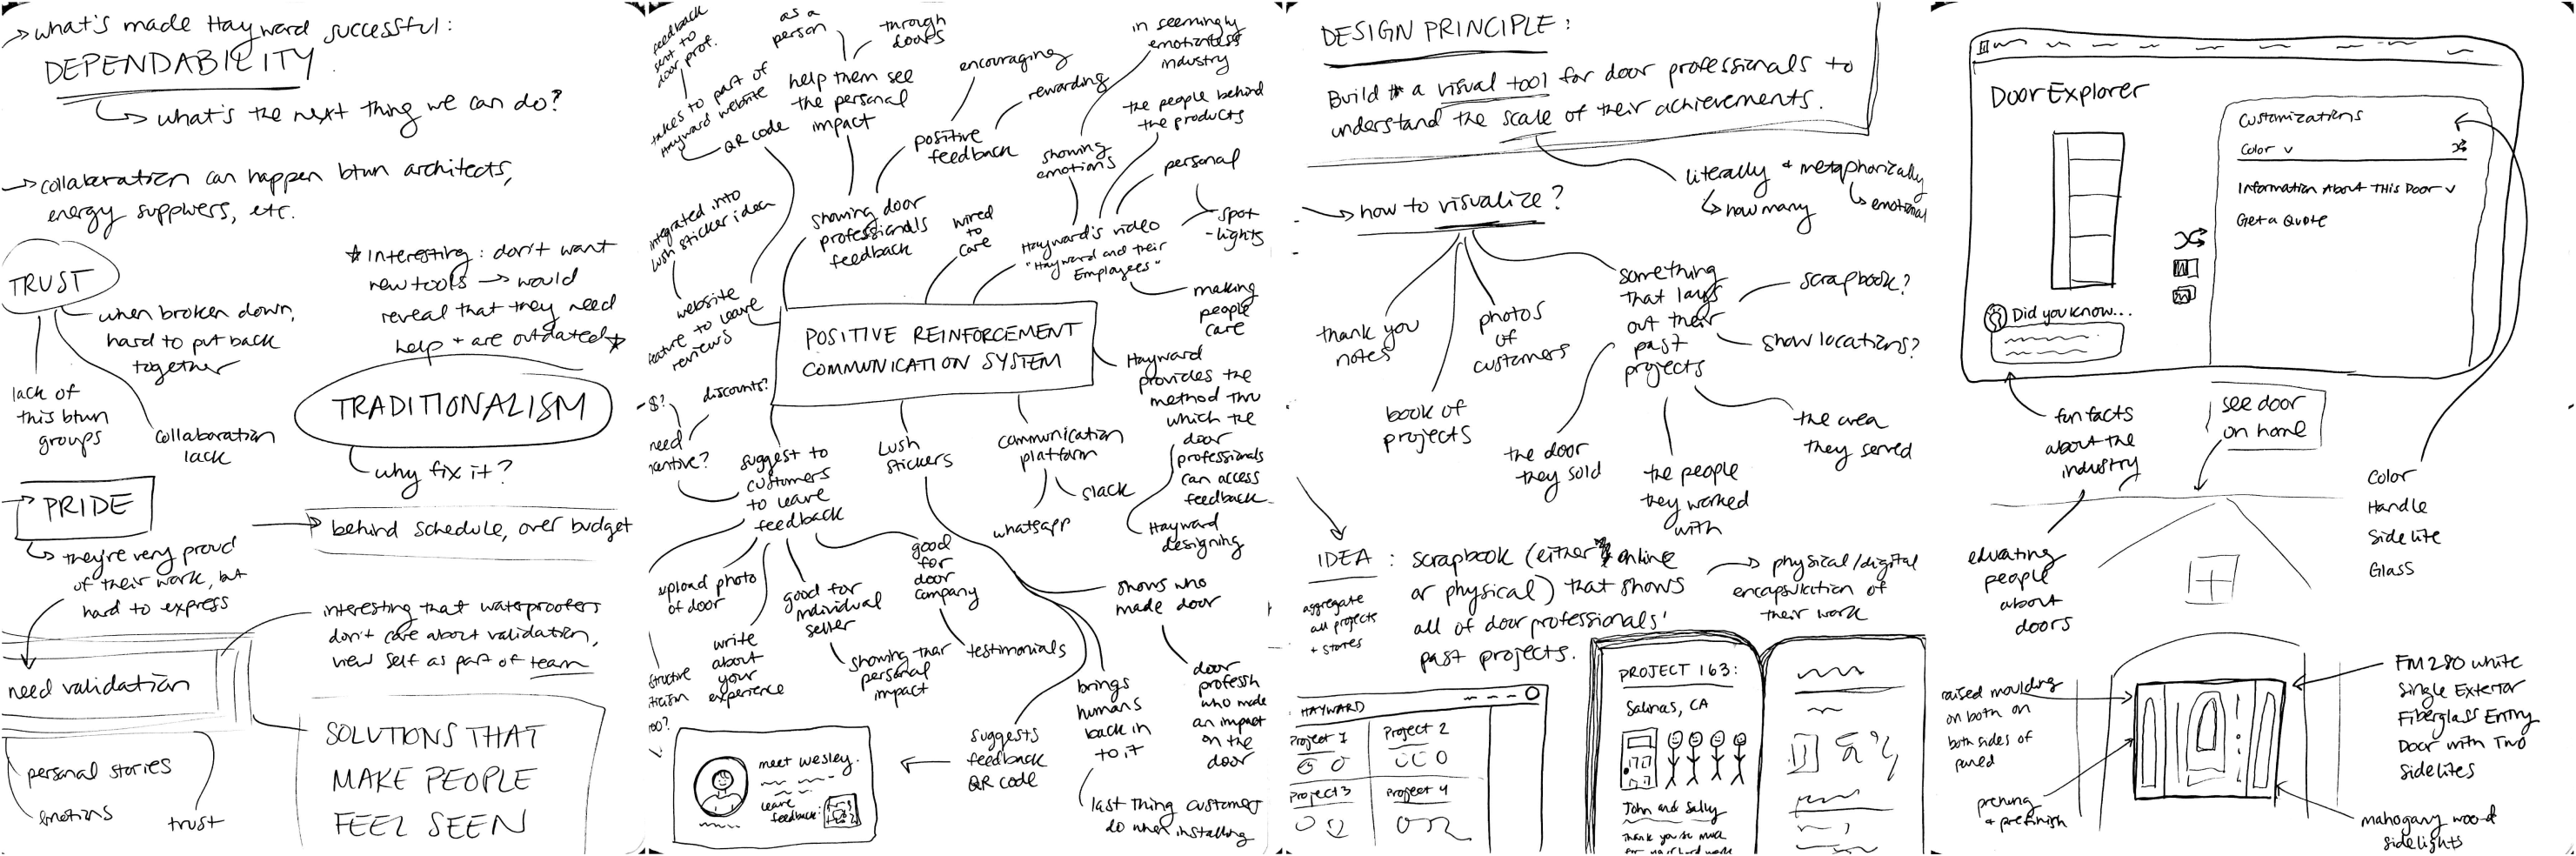 → what's made Hayward successful:
DEPENDABILITY
↳ what's the next thing we can do?
→ collaboration can happen btwn architects,
energy suppliers, etc.
TRUST
when broken down,
hard to put back
together
lack of
this btwn
groups
collaboration
lack
★ Interesting: don't want
new tools → would
reveal that they need
help + are outdated ★
TRADITIONALISM
why fix it?
PRIDE
→ behind schedule, over budget
↳ they're very proud
of their work, but
hard to express
need validation
interesting that waterproofers
don't care about validation,
view self as part of team
personal stories
emotions
trust
SOLUTIONS THAT
MAKE PEOPLE
FEEL SEEN
feedback
sent to
door prof.
takes to part of
Hayward website
QR code
as a
person
through
doors
help them see
the personal
impact
encouraging
rewarding
positive
feedback
in seemingly
emotionless
industry
the people behind
the products
showing
emotions
personal
spot
-lights
integrated into
Lush sticker idea
showing door
professionals
feedback
wired
to
care
Hayward's video
"Hayward and their
Employees"
making
people
care
website
feature to leave
reviews
POSITIVE REINFORCEMENT
COMMUNICATION SYSTEM
Hayward
provides the
method thru
which the
door
professionals
can access
feedback
Hayward
designing
-$?
discounts?
need
suggest to
customers
to leave
feedback
Lush
stickers
communication
platform
slack
whatsapp
upload photo
of door
write
about
your
experience
good for
individual
seller
showing their
personal
impact
good
for
door
company
testimonials
shows who
made door
door
professn
who made
an impact
on the
door
brings
humans
back in
to it
last thing customers
do when installing
suggests
feedback
QR code
meet wesley.
leave
feedback:
DESIGN PRINCIPLE:
Build a visual tool for door professionals to
understand the scale of their achievements.
literally + metaphorically
↳ how many
↳ emotional
→ how to visualize?
thank you
notes
book of
projects
photos
of
customers
something
that lays
out their
past
projects
scrapbook?
show locations?
the area
they served
the people
they worked
with
the door
they sold
IDEA: scrapbook (either online
or physical) that shows
all of door professionals'
past projects.
→ physical/digital
encapsulation of
their work
aggregate
all projects
+ stores
HAYWARD
Project 1
Project 2
Project 3
Project 4
PROJECT 163:
Salinas, CA
John and Sally
Thank you so much
for your hard work
Door Explorer
Customizations
Color ∨
Information About This Door ∨
Get a Quote
Did you know...
fun facts
about the
industry
see door
on home
educating
people
about
doors
Color
Handle
Sidelite
Glass
raised moulding
on both on
both sides of
panel
+ prefinish
FM280 white
Single Exterior
Fiberglass Entry
Door with Two
Sidelites
mahogany wood
sidelights